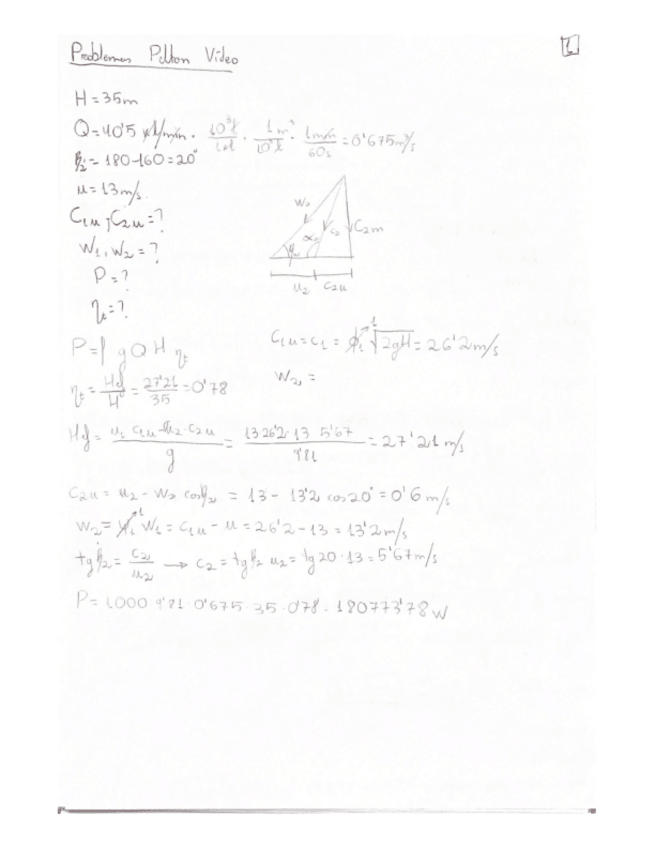 Problemas Pelton Video
1
H = 35m
Q = 40'5 kl/min · 10³l/1kl · 1m³/10³l · 1min/60s = 0'675 m³/s
β₂ = 180-160 = 20°
u = 13 m/s.
C₁u ; C₂u = ?
W₁, W₂ = ?
P = ?
ηt = ?
W₂ C₂ C₂m
α₂
u₂ C₂u
P = ρ g Q H ηt
C₁u = C₁ = ϕ₁ 1 √2gH = 26'2 m/s
ηt = Hef/H = 27'21/35 = 0'78
W₂, =
Hef = u₁ C₁u - u₂ · C₂u / g = 13·26'2 - 13 · 5'67 / 9'81 = 27'21 m/s
C₂u = u₂ - W₂ cosβ₂ = 13 - 13'2 cos20° = 0'6 m/s
W₂ = ψ₁ 1 W₁ = C₁u - u = 26'2 - 13 = 13'2 m/s
tgβ₂ = C₂/u₂ → C₂ = tgβ₂ u₂ = tg20 · 13 = 5'67 m/s
P = 1000 · 9'81 · 0'675 · 35 · 0'78 = 180773'78 W